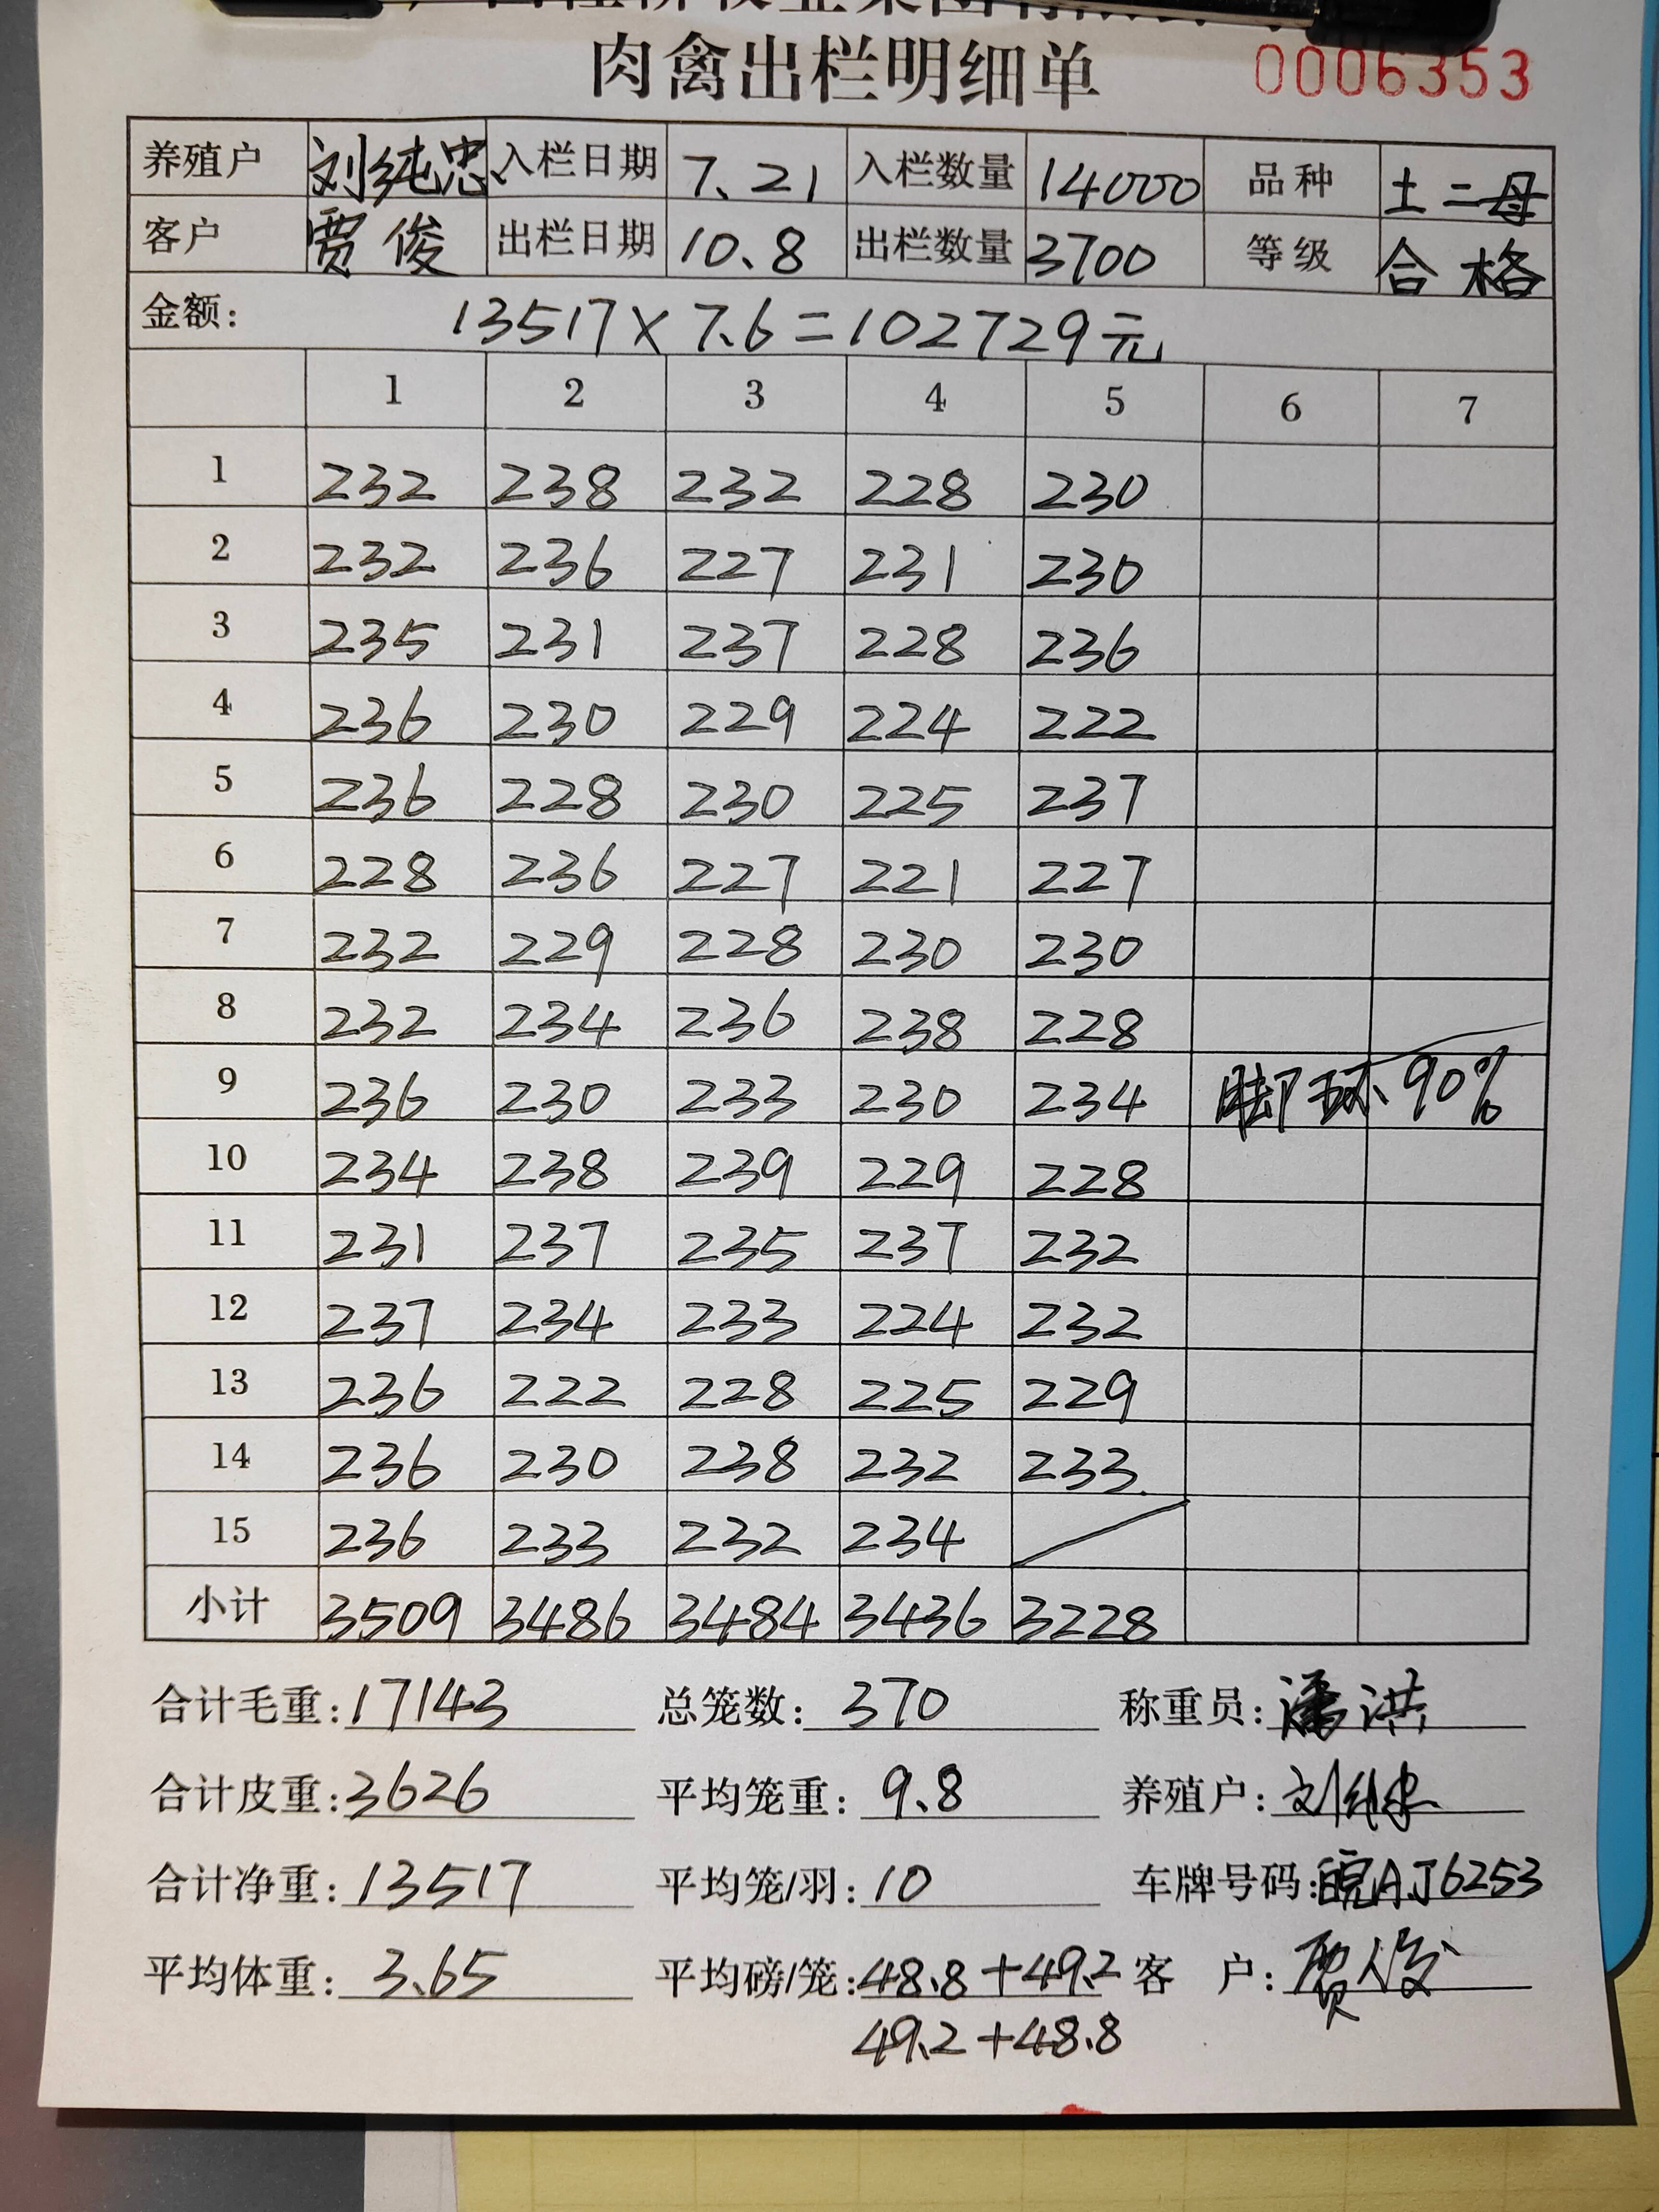 肉禽出栏明细单 0006353
养殖户 刘纯忠 入栏日期 7.21 入栏数量 14000 品种 土二母
客户 贾俊 出栏日期 10.8 出栏数量 3700 等级 合格
金额: 13517×7.6=102729元
1 2 3 4 5 6 7
1 232 238 232 228 230
2 232 236 227 231 230
3 235 231 237 228 236
4 236 230 229 224 222
5 236 228 230 225 237
6 228 236 227 221 227
7 232 229 228 230 230
8 232 234 236 238 228
9 236 230 233 230 234 脚环90%
10 234 238 239 229 228
11 231 237 235 237 232
12 237 234 233 224 232
13 236 222 228 225 229
14 236 230 238 232 233
15 236 233 232 234
小计 3509 3486 3484 3436 3228
合计毛重:17143 总笼数:370 称重员:潘洪
合计皮重:3626 平均笼重:9.8 养殖户:刘纯忠
合计净重:13517 平均笼/羽:10 车牌号码:皖AJ6253
平均体重:3.65 平均磅/笼:48.8+49.2 客 户:贾俊
49.2+48.8